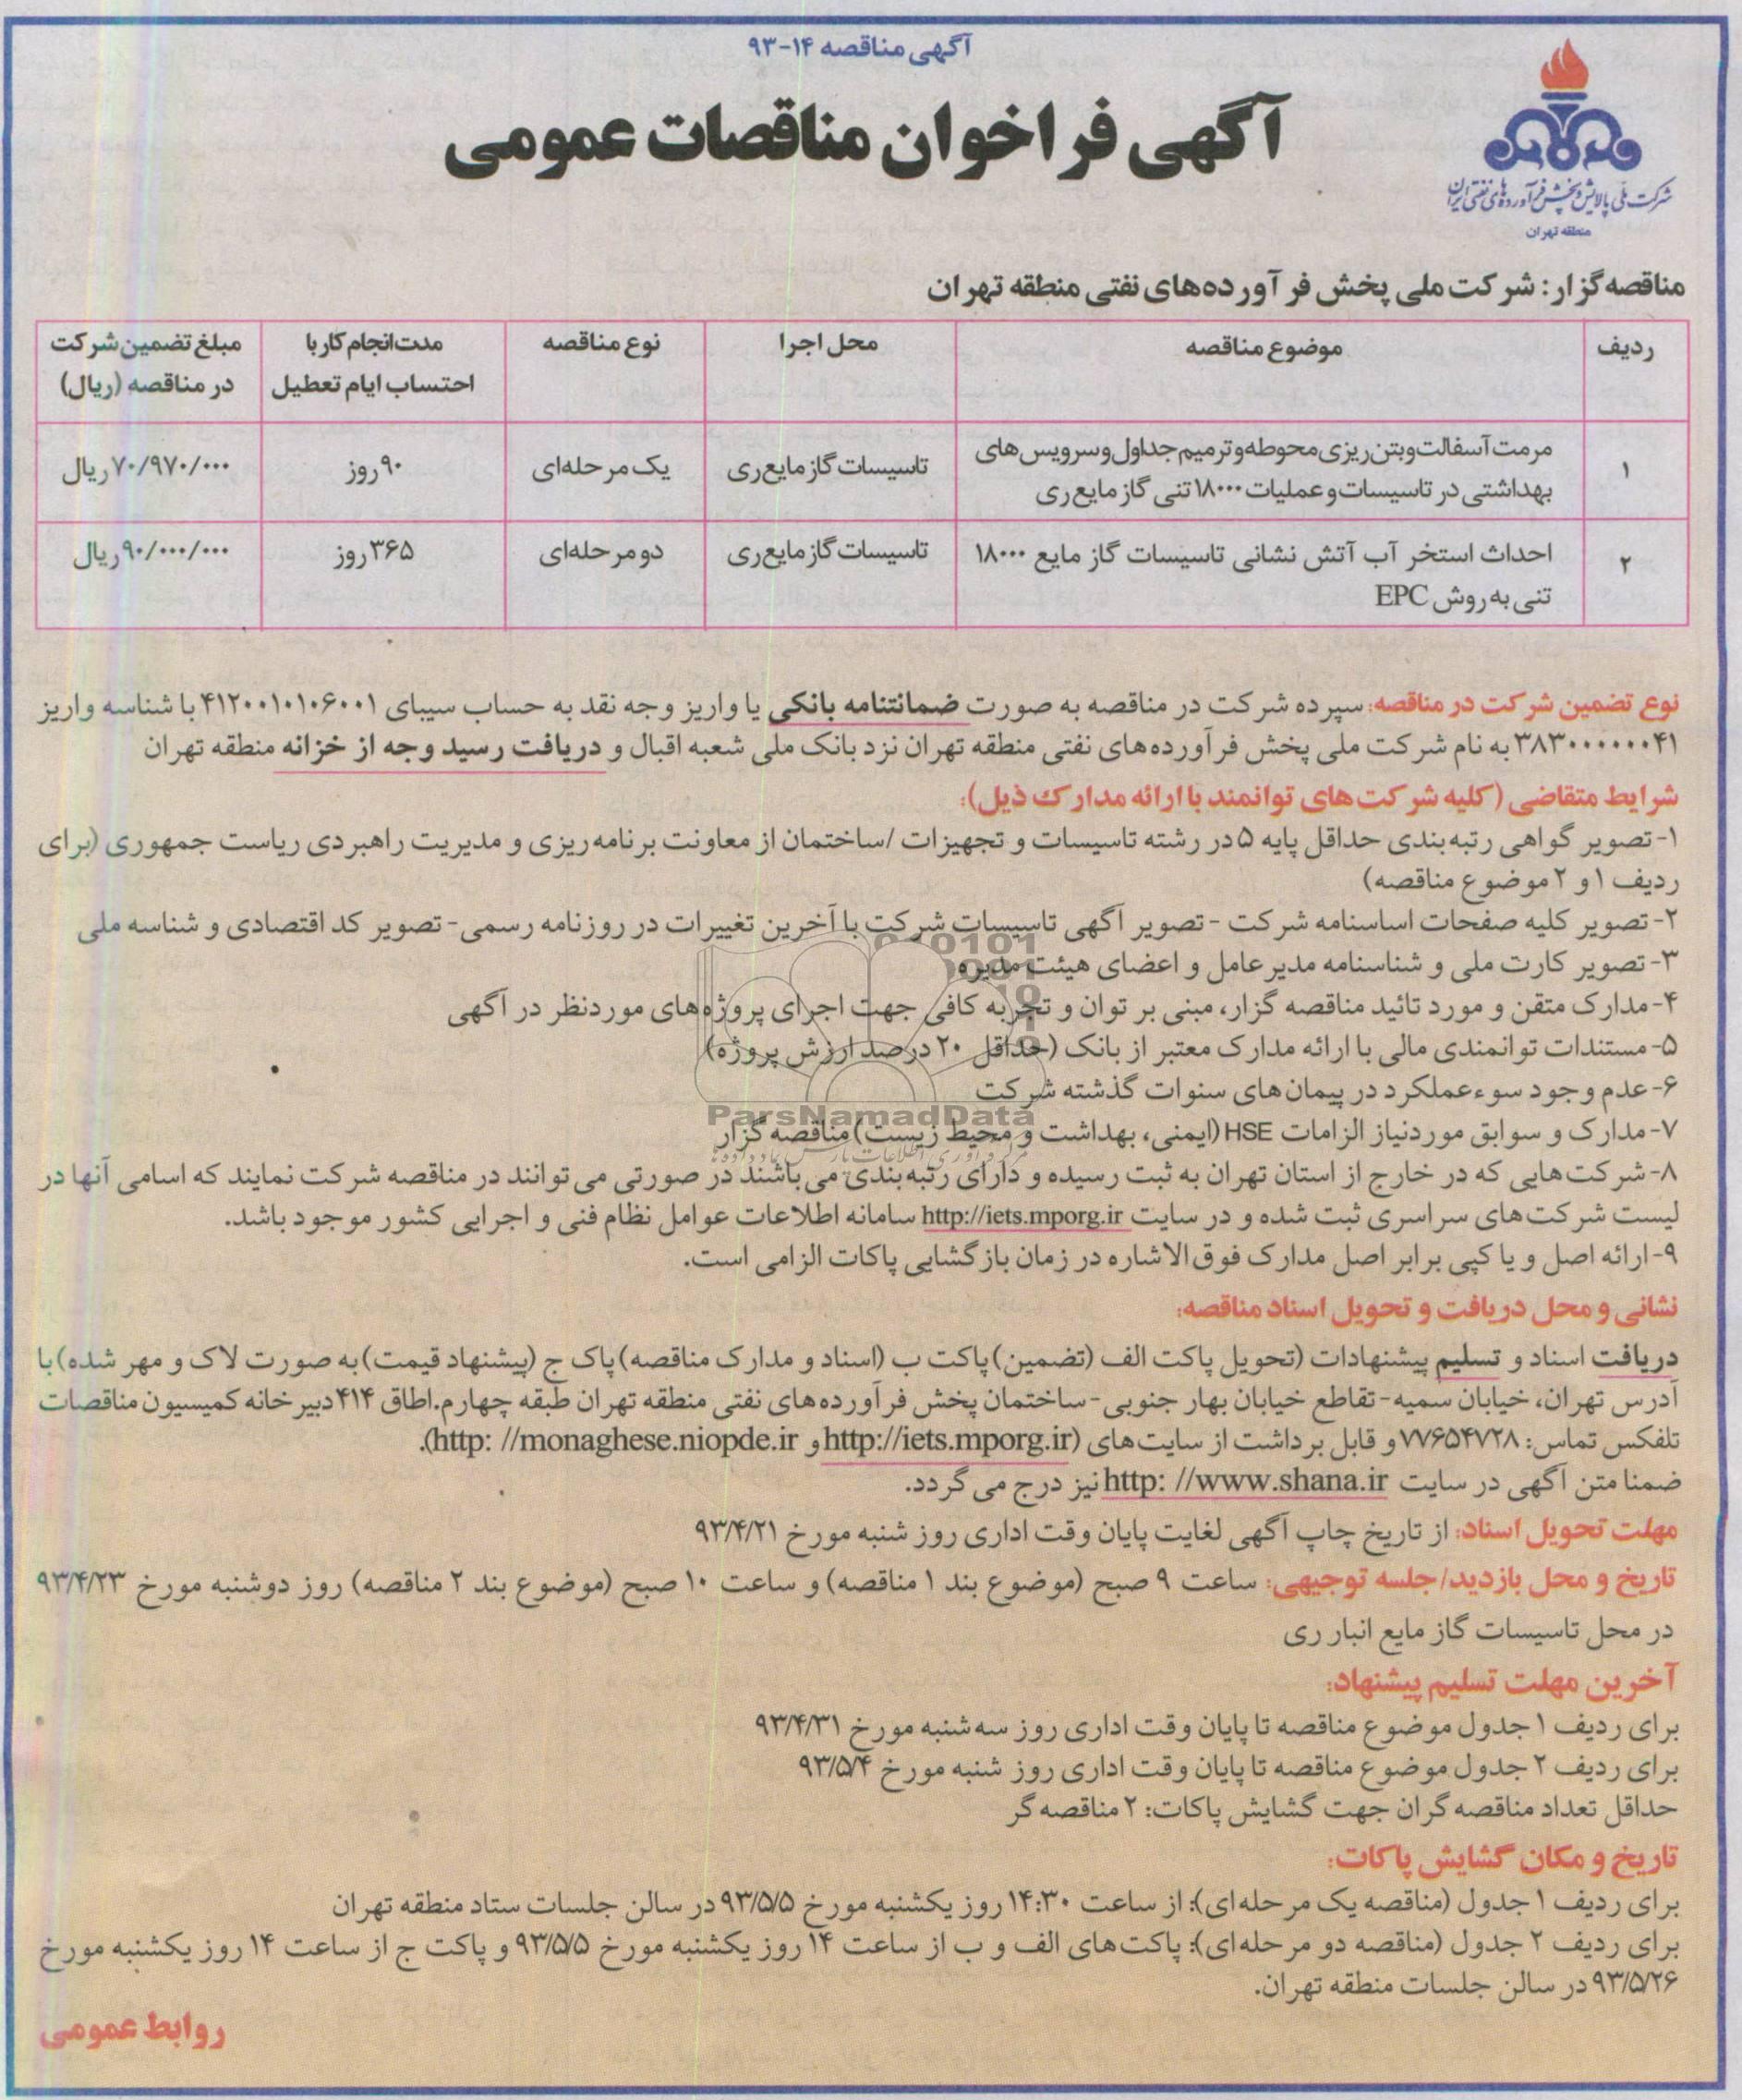 آگهی مناقصه ۱۴-۹۳
آگهی فراخوان مناقصات عمومی
شرکت ملی پالایش و پخش فرآورده‌های نفتی ایران
منطقه تهران
مناقصه‌گزار: شرکت ملی پخش فرآورده‌های نفتی منطقه تهران
ردیف	موضوع مناقصه	محل اجرا	نوع مناقصه	مدت انجام کار با احتساب ایام تعطیل	مبلغ تضمین شرکت در مناقصه (ریال)
۱	مرمت آسفالت و بتن‌ریزی محوطه و ترمیم جداول و سرویس‌های بهداشتی در تاسیسات و عملیات ۱۸۰۰۰ تنی گاز مایع ری	تاسیسات گاز مایع ری	یک مرحله‌ای	۹۰ روز	۷۰/۹۷۰/۰۰۰ ریال
۲	احداث استخر آب آتش نشانی تاسیسات گاز مایع ۱۸۰۰۰ تنی به روش EPC	تاسیسات گاز مایع ری	دو مرحله‌ای	۳۶۵ روز	۹۰/۰۰۰/۰۰۰ ریال
نوع تضمین شرکت در مناقصه: سپرده شرکت در مناقصه به صورت ضمانتنامه بانکی یا واریز وجه نقد به حساب سیبای ۴۱۲۰۰۱۰۱۰۶۰۰۱ با شناسه واریز
۳۸۳۰۰۰۰۰۰۰۴۱ به نام شرکت ملی پخش فرآورده‌های نفتی منطقه تهران نزد بانک ملی شعبه اقبال و دریافت رسید وجه از خزانه منطقه تهران
شرایط متقاضی (کلیه شرکت‌های توانمند با ارائه مدارک ذیل):
۱- تصویر گواهی رتبه‌بندی حداقل پایه ۵ در رشته تاسیسات و تجهیزات /ساختمان از معاونت برنامه‌ریزی و مدیریت راهبردی ریاست جمهوری (برای
ردیف ۱ و ۲ موضوع مناقصه)
۲- تصویر کلیه صفحات اساسنامه شرکت - تصویر آگهی تاسیسات شرکت با آخرین تغییرات در روزنامه رسمی- تصویر کد اقتصادی و شناسه ملی
۳- تصویر کارت ملی و شناسنامه مدیرعامل و اعضای هیئت مدیره
۴- مدارک متقن و مورد تائید مناقصه گزار، مبنی بر توان و تجربه کافی جهت اجرای پروژه‌های موردنظر در آگهی
۵- مستندات توانمندی مالی با ارائه مدارک معتبر از بانک (حداقل ۲۰ درصد ارزش پروژه)
۶- عدم وجود سوءعملکرد در پیمان‌های سنوات گذشته شرکت
ParsNamadData
۷- مدارک و سوابق موردنیاز الزامات HSE (ایمنی، بهداشت و محیط زیست) مناقصه گزار
۸- شرکت‌هایی که در خارج از استان تهران به ثبت رسیده و دارای رتبه‌بندی می‌باشند در صورتی می‌توانند در مناقصه شرکت نمایند که اسامی آنها در
لیست شرکت‌های سراسری ثبت شده و در سایت http://iets.mporg.ir سامانه اطلاعات عوامل نظام فنی و اجرایی کشور موجود باشد.
۹- ارائه اصل و یا کپی برابر اصل مدارک فوق‌الاشاره در زمان بازگشایی پاکات الزامی است.
نشانی و محل دریافت و تحویل اسناد مناقصه:
دریافت اسناد و تسلیم پیشنهادات (تحویل پاکت الف (تضمین) پاکت ب (اسناد و مدارک مناقصه) پاک ج (پیشنهاد قیمت) به صورت لاک و مهر شده) با
آدرس تهران، خیابان سمیه- تقاطع خیابان بهار جنوبی- ساختمان پخش فرآورده‌های نفتی منطقه تهران طبقه چهارم. اطاق ۴۱۴ دبیرخانه کمیسیون مناقصات
تلفکس تماس: ۷۷۶۵۴۷۲۸ و قابل برداشت از سایت‌های (http://iets.mporg.ir و http: //monaghese.niopde.ir).
ضمنا متن آگهی در سایت http: //www.shana.ir نیز درج می گردد.
مهلت تحویل اسناد: از تاریخ چاپ آگهی لغایت پایان وقت اداری روز شنبه مورخ ۹۳/۴/۲۱
تاریخ و محل بازدید/جلسه توجیهی: ساعت ۹ صبح (موضوع بند ۱ مناقصه) و ساعت ۱۰ صبح (موضوع بند ۲ مناقصه) روز دوشنبه مورخ ۹۳/۴/۲۳
در محل تاسیسات گاز مایع انبار ری
آخرین مهلت تسلیم پیشنهاد:
برای ردیف ۱ جدول موضوع مناقصه تا پایان وقت اداری روز سه‌شنبه مورخ ۹۳/۴/۳۱
برای ردیف ۲ جدول موضوع مناقصه تا پایان وقت اداری روز شنبه مورخ ۹۳/۵/۴
حداقل تعداد مناقصه گران جهت گشایش پاکات: ۲ مناقصه گر
تاریخ و مکان گشایش پاکات:
برای ردیف ۱ جدول (مناقصه یک مرحله‌ای): از ساعت ۱۴:۳۰ روز یکشنبه مورخ ۹۳/۵/۵ در سالن جلسات ستاد منطقه تهران
برای ردیف ۲ جدول (مناقصه دو مرحله‌ای): پاکت‌های الف و ب از ساعت ۱۴ روز یکشنبه مورخ ۹۳/۵/۵ و پاکت ج از ساعت ۱۴ روز یکشنبه مورخ
۹۳/۵/۲۶ در سالن جلسات منطقه تهران.
روابط عمومی